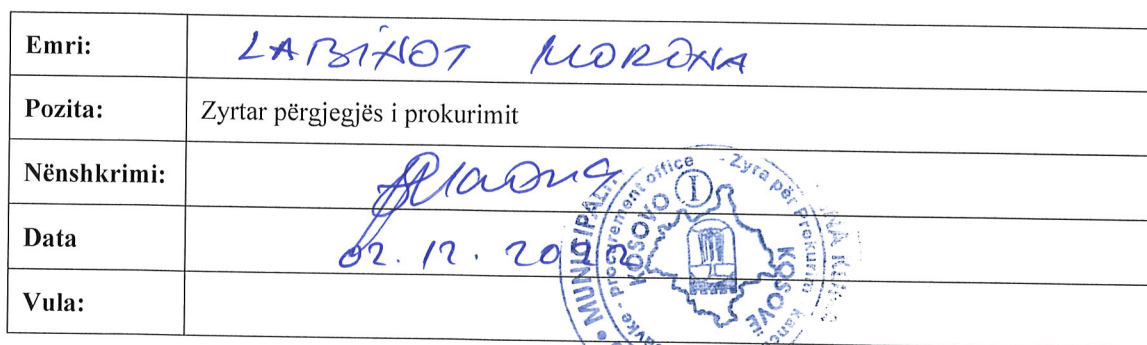 Emri: LABINOT MORONA
Pozita: Zyrtar përgjegjës i prokurimit
Nënshkrimi:
Data 02.12.2022
Vula:
Procurement office - Zyra për Prokurim
KOSOVO I KOSOVË